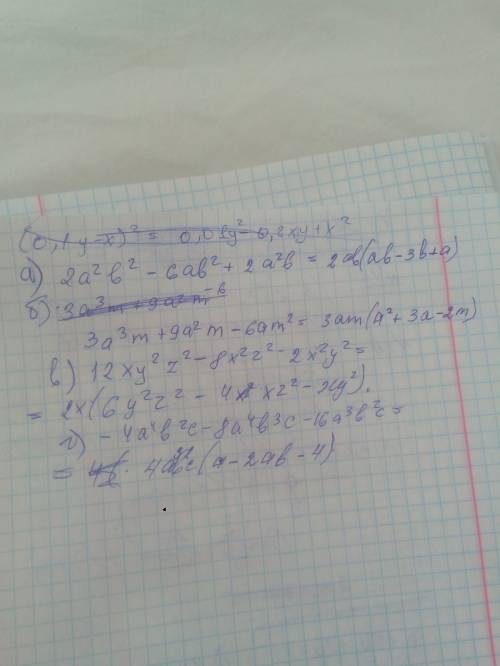 (0,1y-x)² = 0,01y² - 0,2xy+x²
а) 2a²b² - 6ab² + 2a²b = 2ab(ab-3b+a)
б) 3a³m + 9a²m - 6
3a³m + 9a²m - 6am² = 3am(a²+3a-2m)
в) 12xy²z² - 8x²z² - 2x²y² =
= 2x(6y²z² - 4xz² - xy²).
г) - 4a⁴b²c - 8a⁴b³c - 16a³b²c =
= 4a b²c(a - 2ab - 4)